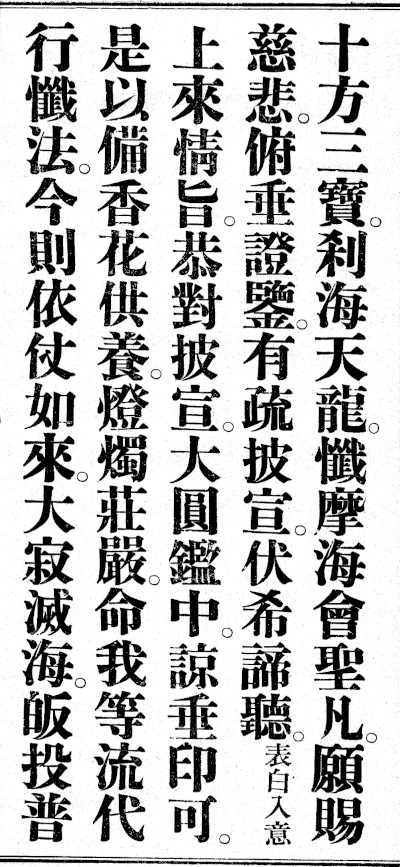 十方三寶。刹海天龍。懺摩海會聖凡。願賜
慈悲。俯垂證鑒。有疏披宣。伏希諦聽。表白入意
上來情旨。恭對披宣。大圓鑑中。諒垂印可。
是以備香花供養。燈燭莊嚴。命我等流代
行懺法。今則依仗如來。大寂滅海。皈投普